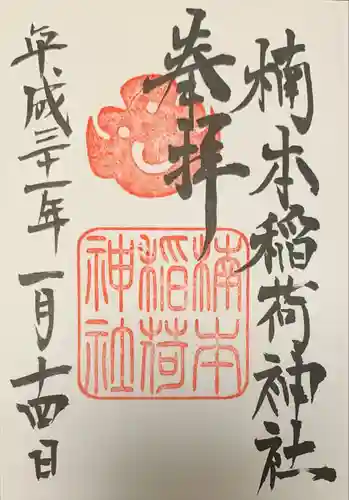 楠本稲荷神社
奉拝
平成三十一年一月十四日
楠本
稲荷
神社